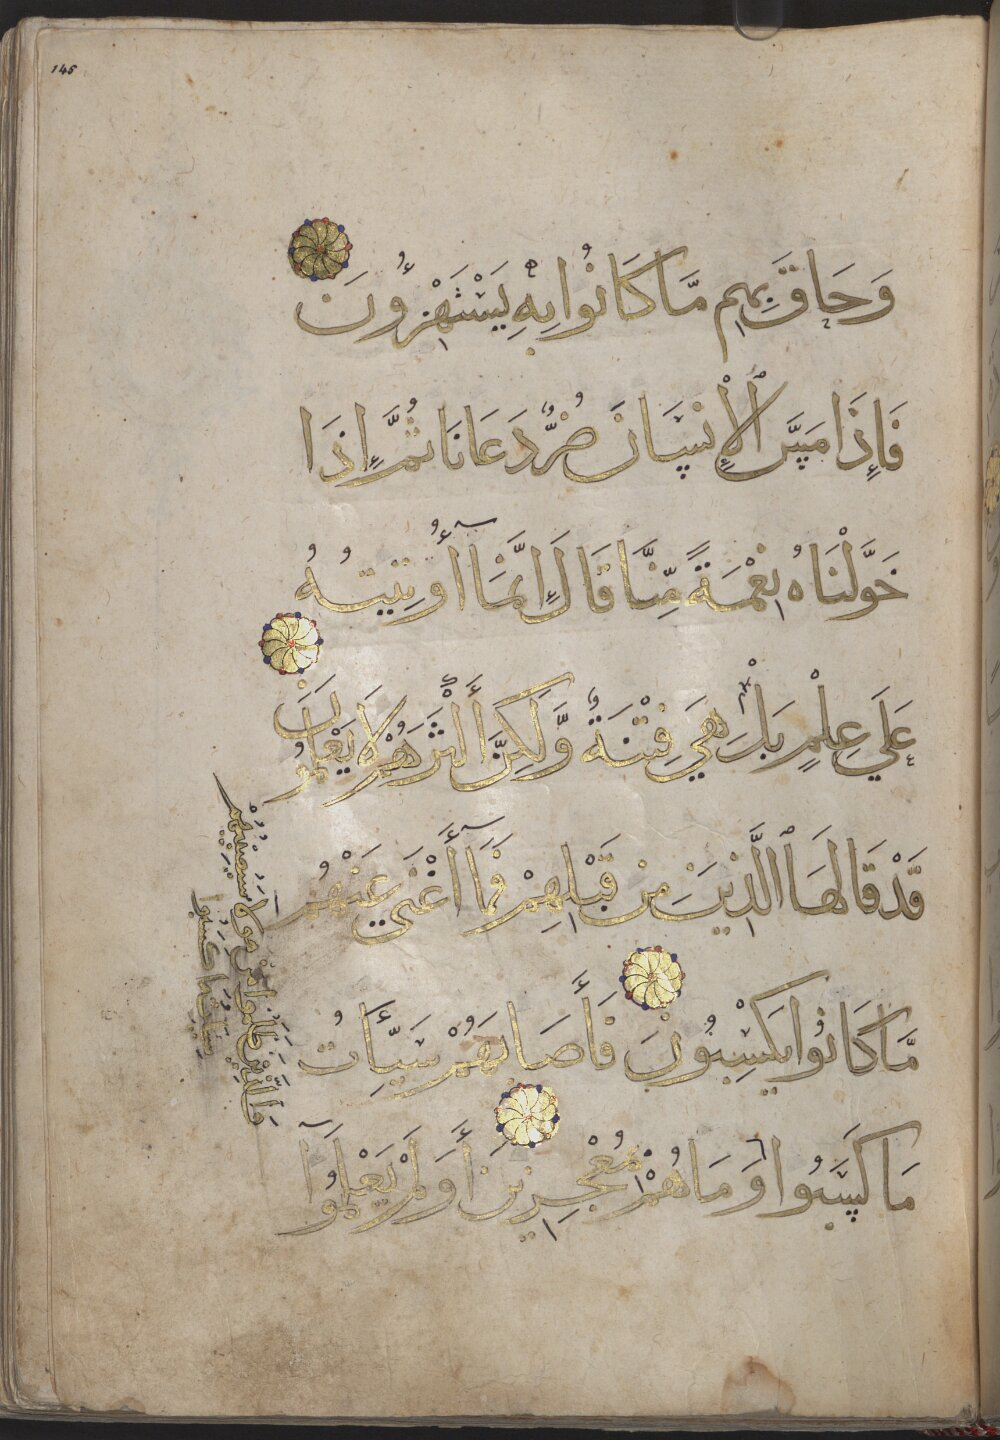 145
وَحَاقَ بِهِم مَّا كَانُوا بِهِ يَسْتَهْزِءُونَ
فَإِذَا مَسَّ ٱلْإِنسَانَ ضُرٌّ دَعَانَا ثُمَّ إِذَا
خَوَّلْنَاهُ نِعْمَةً مِّنَّا قَالَ إِنَّمَا أُوتِيتُهُ
عَلَى عِلْمٍ بَلْ هِيَ فِتْنَةٌ وَّلَكِنَّ أَكْثَرَهُمْ لَا يَعْلَمُونَ
قَدْ قَالَهَا ٱلَّذِينَ مِن قَبْلِهِمْ فَمَا أَغْنَى عَنْهُم
مَّا كَانُوا يَكْسِبُونَ فَأَصَابَهُمْ سَيِّئَاتُ
مَا كَسَبُوا وَمَا هُمْ بِمُعْجِزِينَ أَوَلَمْ يَعْلَمُوا
وَالَّذِينَ ظَلَمُوا مِنْ هَؤُلَاءِ سَيُصِيبُهُمْ
سَيِّئَاتُ مَا كَسَبُوا